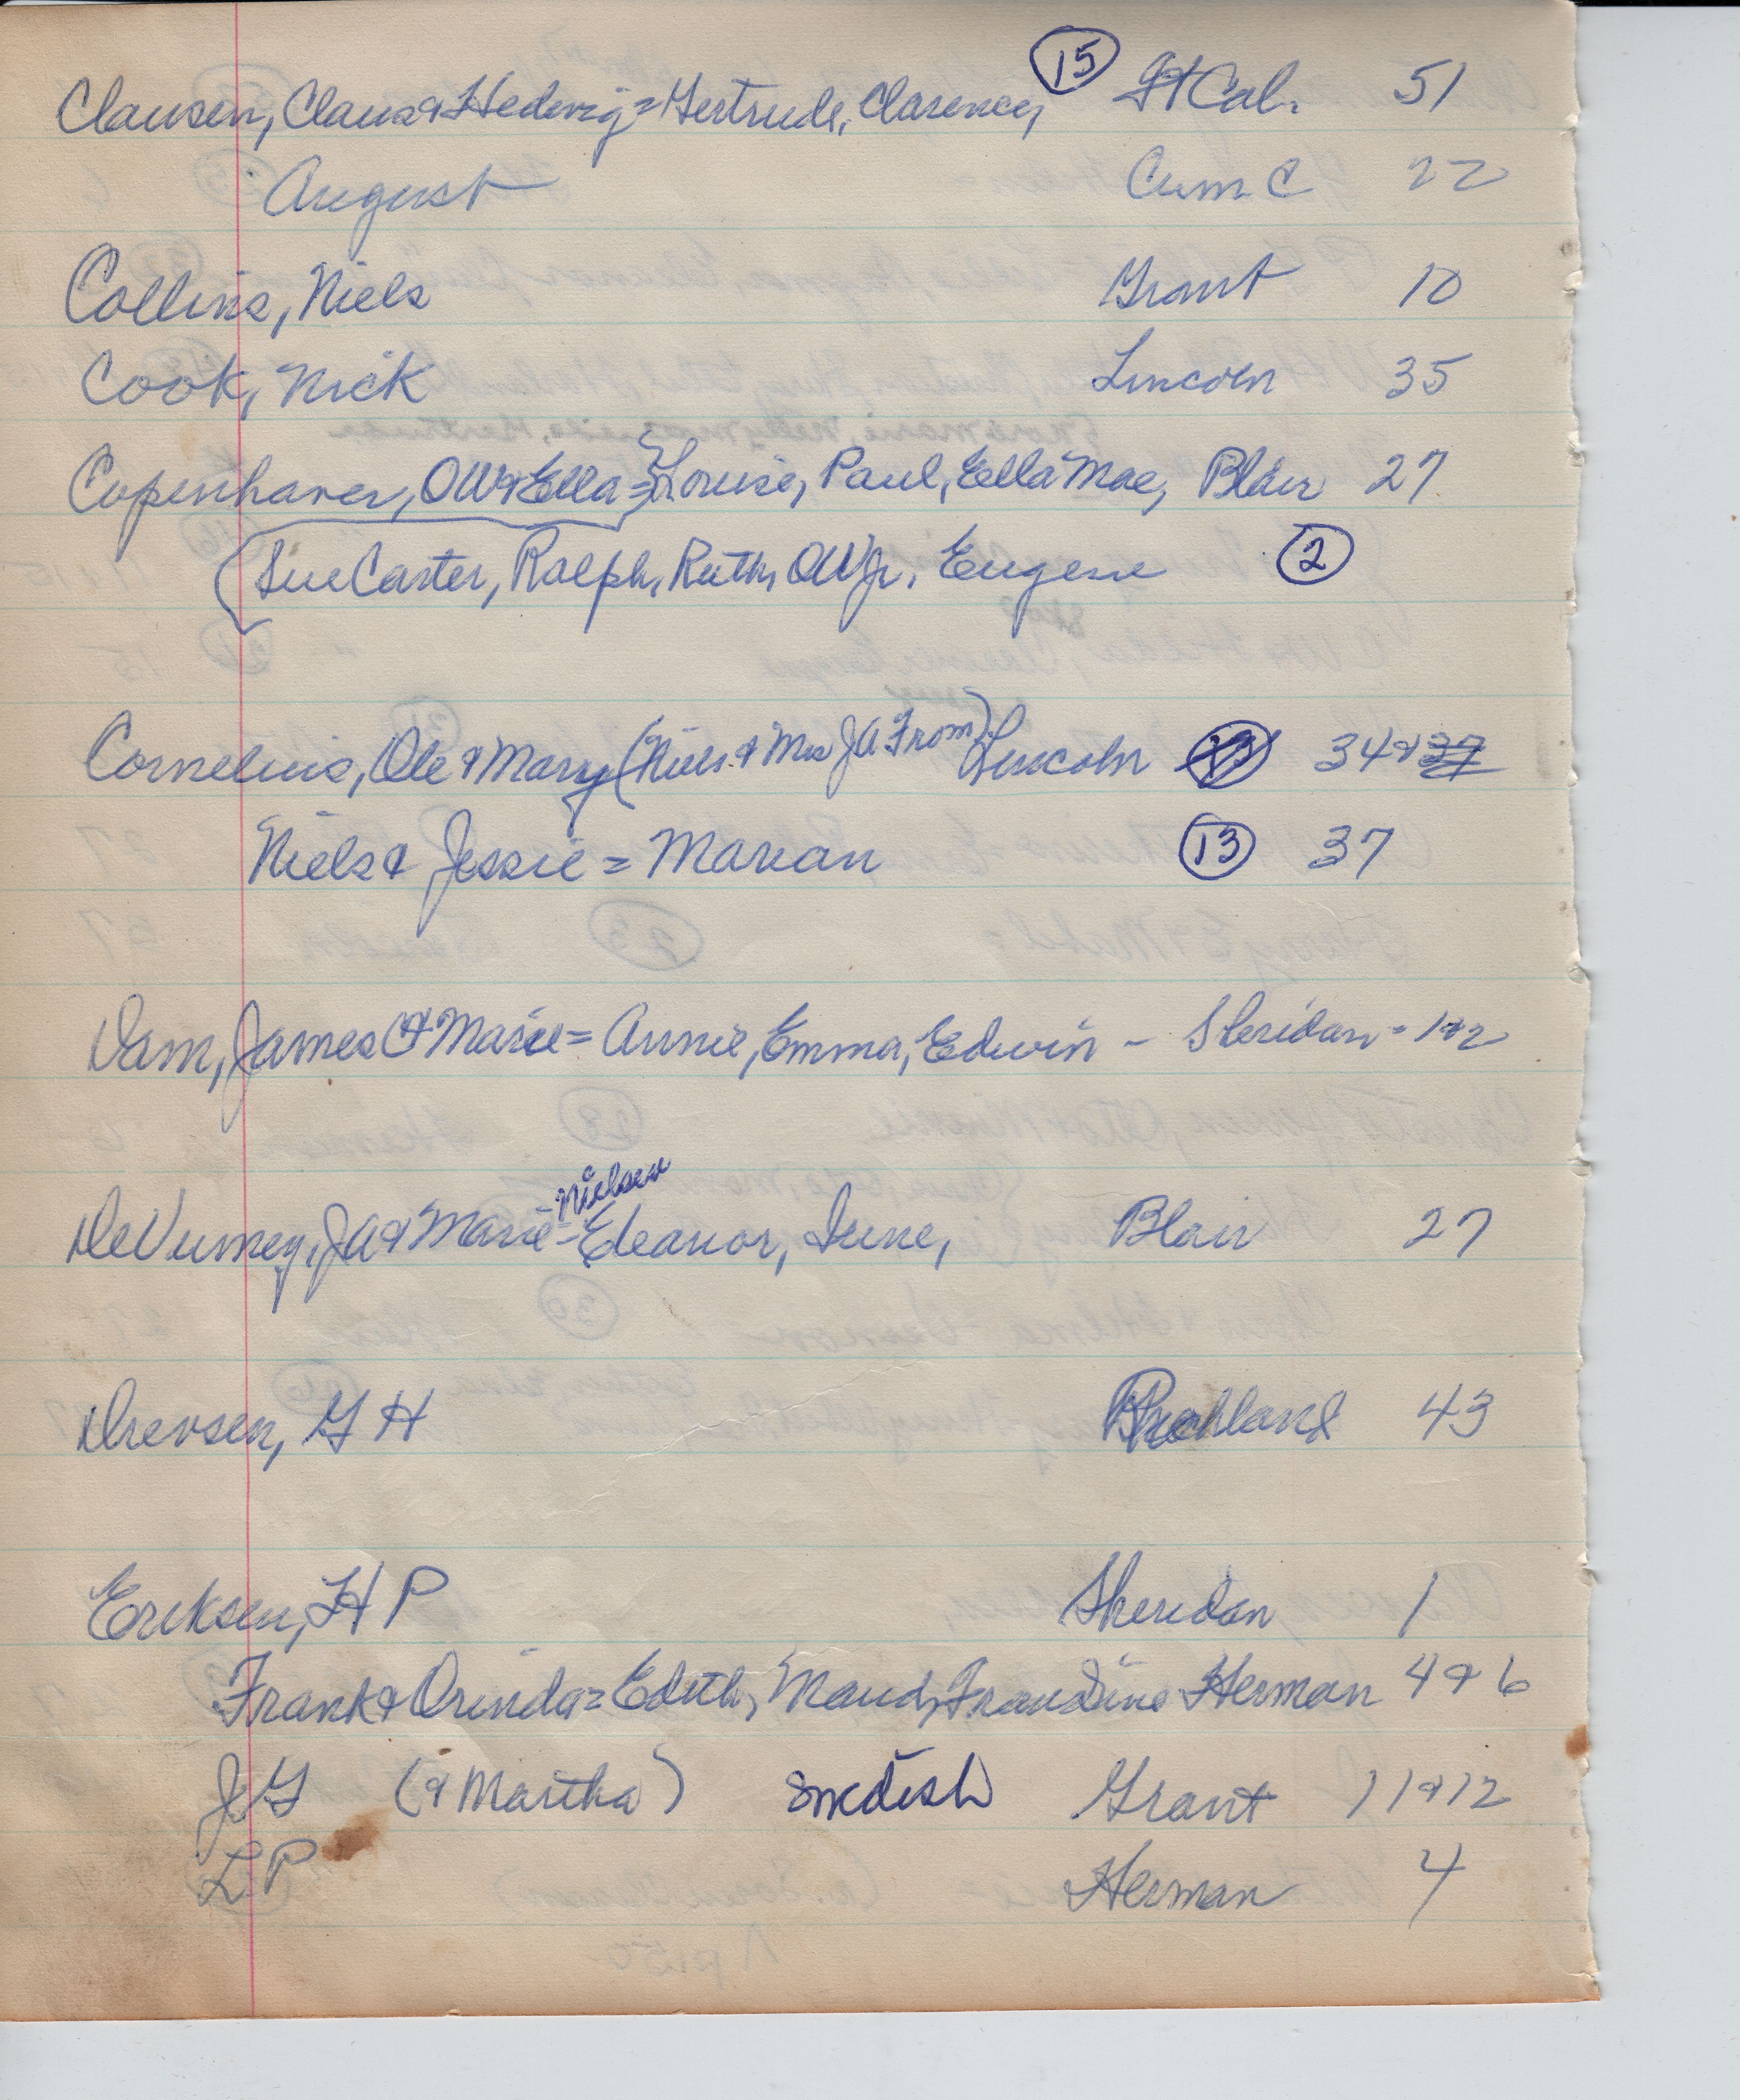 Clausen, Claus & Hedevig = Gertrude, Clarence, (15) Ft Cal. 51
August Cum. C 22
Collins, Niels Grant 10
Cook, Nick Lincoln 35
Copenhaver, OW & Ella = Louise, Paul, Ella Mae, Blair 27
Sue Carter, Ralph, Ruth, OW Jr., Eugene (2)
Cornelius, Ole & Mary (Niels & Mrs JA From) Lincoln (13) 34 & 37
Niels & Jessie = Marian, (13) 37
Dam, James C & Marie = Annie, Emma, Edwin - Sheridan - 1 & 2
Nielsen
DeVumey, JA & Marie - Eleanor, June, Blair 27
Drevsen, G H Richland 43
Eriksen, H P Sheridan 1
Frank & Orinda = Edith, Maud, Herman 4 & 6
JG (& Martha) Swedish Grant 11 & 12
L P Herman 4